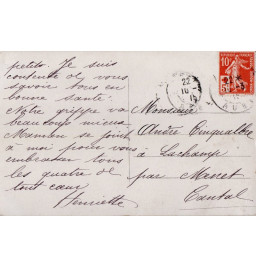 petits. Je suis
contente de vous
savoir tous en
bonne santé.
Notre grippe va
beaucoup mieux
Maman se joint
à moi pour vous
embrasser tous
les quatre de
tout cœur
Henriette
Monsieur
André
à Lachamp
par Manet
Cantal
10
22
10
15